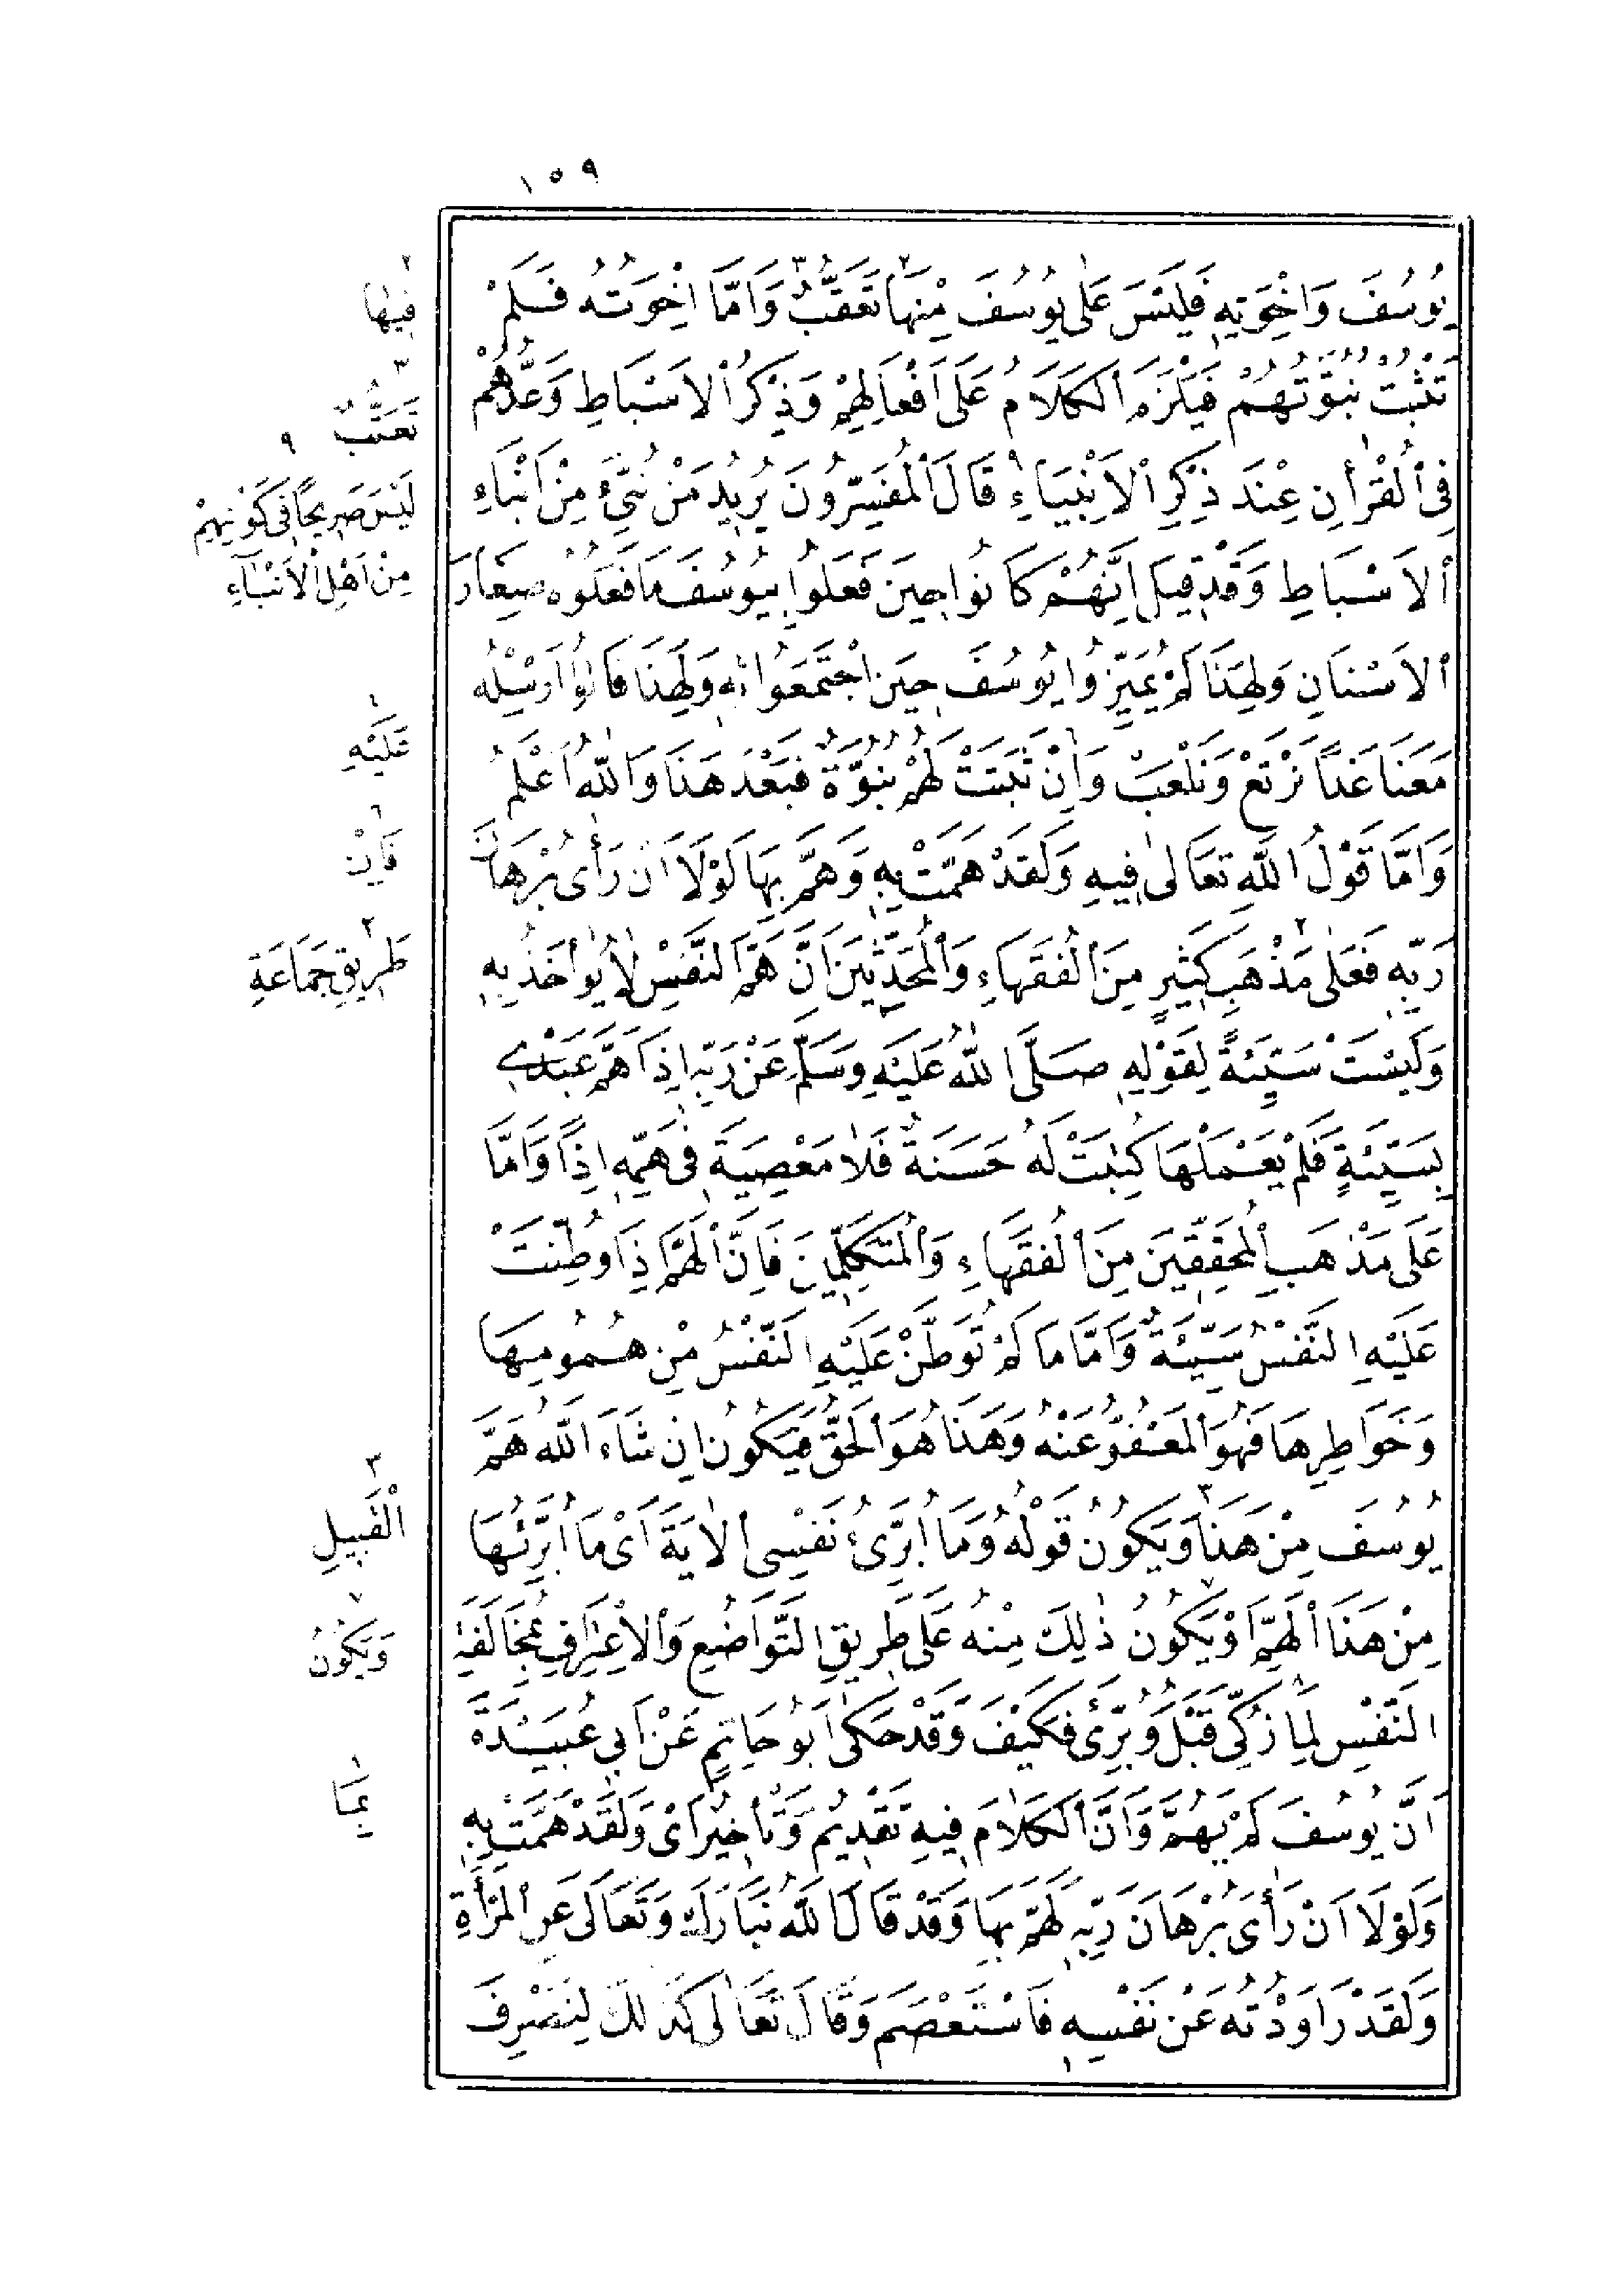 ١٥٩
يُوسُفَ وَاِخْوَتِهِ فَلَيْسَ عَلٰى يُوسُفَ مِنْهَا تَعَقُّبٌ وَاَمَّا اِخْوَتُهُ فَلَمْ
تَثْبُتْ نُبُوَّتُهُمْ فَيَلْزَمَ الْكَلَامُ عَلَى اَفْعَالِهِمْ وَذِكْرُ الْاَسْبَاطِ وَعَدُّهُمْ
فِى الْقُرْاٰنِ عِنْدَ ذِكْرِ الْاَنْبِيَاءِ قَالَ الْمُفَسِّرُونَ يُرِيدُ مَنْ نُبِّئَ مِنْ اَبْنَاءِ
الْاَسْبَاطِ وَقَدْ قِيلَ اِنَّهُمْ كَانُوا حِينَ فَعَلُوا بِيُوسُفَ مَا فَعَلُوهُ صِغَارَ
الْاَسْنَانِ وَلِهَذَا لَمْ يُمَيِّزُوا يُوسُفَ حِينَ اجْتَمَعُوا بِهِ وَلِهَذَا قَالُوا اَرْسِلْهُ
مَعَنَا غَدًا نَرْتَعْ وَنَلْعَبْ وَاِنْ ثَبَتَتْ لَهُمْ نُبُوَّةٌ فَبَعْدَ هَذَا وَاللّٰهُ اَعْلَمُ
وَاَمَّا قَوْلُ اللّٰهِ تَعَالٰى فِيهِ وَلَقَدْ هَمَّتْ بِهِ وَهَمَّ بِهَا لَوْلَا اَنْ رَأٰى بُرْهَانَ
رَبِّهِ فَعَلٰى مَذْهَبِ كَثِيرٍ مِنَ الْفُقَهَاءِ وَالْمُحَدِّثِينَ اَنَّ هَمَّ النَّفْسِ لَا يُؤَاخَذُ بِهِ
وَلَيْسَتْ سَيِّئَةً لِقَوْلِهِ صَلَّى اللّٰهُ عَلَيْهِ وَسَلَّمَ عَنْ رَبِّهِ اِذَا هَمَّ عَبْدِى
بِسَيِّئَةٍ فَلَمْ يَعْمَلْهَا كُتِبَتْ لَهُ حَسَنَةٌ فَلَا مَعْصِيَةَ فِى هَمِّهِ اِذًا وَاَمَّا
عَلَى مَذْهَبِ الْمُحَقِّقِينَ مِنَ الْفُقَهَاءِ وَالْمُتَكَلِّمِينَ فَاِنَّ الْهَمَّ اِذَا وُطِّنَتْ
عَلَيْهِ النَّفْسُ سَيِّئَةٌ وَاَمَّا مَا لَمْ تُوَطَّنْ عَلَيْهِ النَّفْسُ مِنْ هُمُومِهَا
وَخَوَاطِرِهَا فَهُوَ الْمَعْفُوُّ عَنْهُ وَهَذَا هُوَ الْحَقُّ فَيَكُونُ اِنْ شَاءَ اللّٰهُ هَمُّ
يُوسُفَ مِنْ هَذَا وَيَكُونُ قَوْلُهُ وَمَا اُبَرِّئُ نَفْسِى الْاٰيَةَ اَىْ مَا اُبَرِّئُهَا
مِنْ هَذَا الْهَمِّ اَوْ يَكُونُ ذٰلِكَ مِنْهُ عَلَى طَرِيقِ التَّوَاضُعِ وَالْاِعْتِرَافِ بِمُخَالَفَةِ
النَّفْسِ لِمَا زُكِّىَ قَبْلُ وَبُرِّئَ فَكَيْفَ وَقَدْ حَكٰى اَبُو حَاتِمٍ عَنْ اَبِى عُبَيْدَةَ
اَنَّ يُوسُفَ لَمْ يَهُمَّ وَاَنَّ الْكَلَامَ فِيهِ تَقْدِيمٌ وَتَأْخِيرٌ اَىْ وَلَقَدْ هَمَّتْ بِهِ
وَلَوْلَا اَنْ رَأٰى بُرْهَانَ رَبِّهِ لَهَمَّ بِهَا وَقَدْ قَالَ اللّٰهُ تَبَارَكَ وَتَعَالَى عَنِ الْمَرْأَةِ
وَلَقَدْ رَاوَدْتُهُ عَنْ نَفْسِهِ فَاسْتَعْصَمَ وَقَالَ تَعَالٰى كَذٰلِكَ لِنَصْرِفَ
٢
فِيهَا
٣
تَعَتُّبٌ ٩
لَيْسَ صَرِيحًا فِى كَوْنِهِمْ
مِنْ اَهْلِ الْاَنْبَآءِ
١
عَلَيْهِ
٦
فَاِنْ
٢
طَرِيقِ جَمَاعَةِ
٣
الْقَبِيلِ
٧
وَيَكُونُ
١
بِمَا